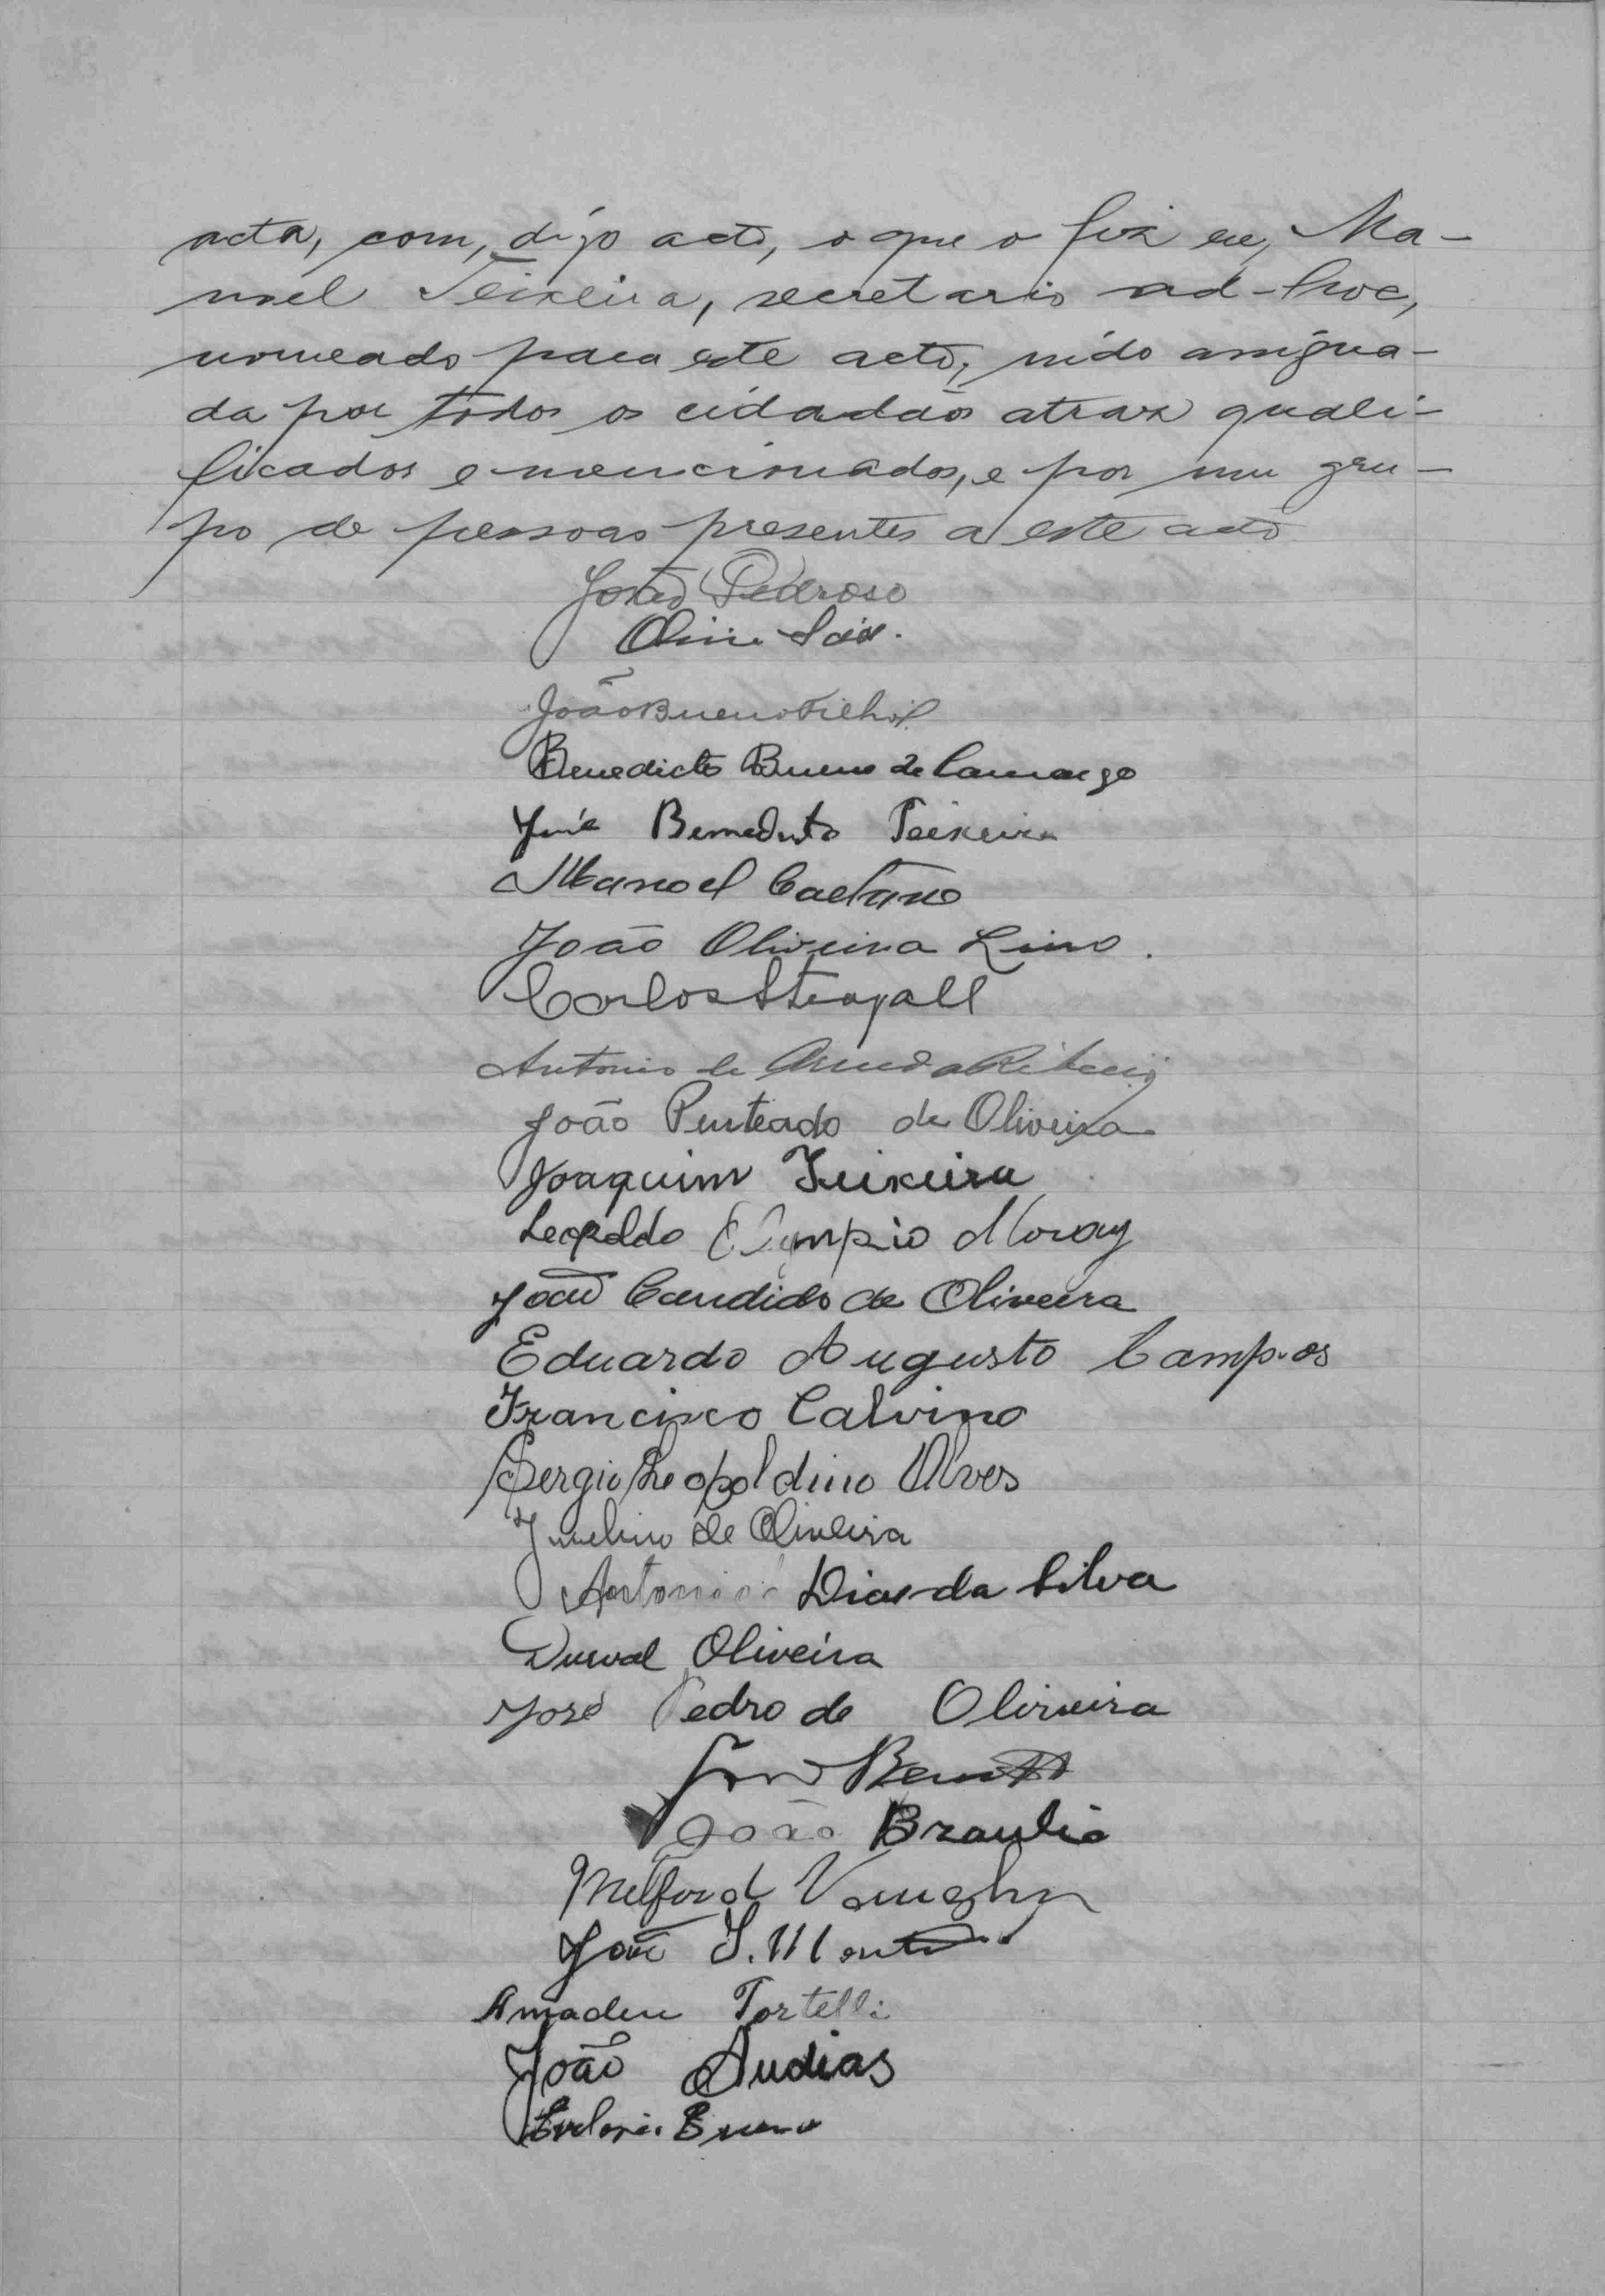 acta, com, digo acto, o que o fiz eu, Ma-
noel Teixeira, secretario ad-hoc,
nomeado para este acto, sendo assigna-
da por todos os cidadãos atraz quali-
ficados e mencionados, e por um gru-
po de pessoas presentes a este acto
Pedroso
João Bueno Filho
Benedicto Bueno de Camargo
José Benedito Teixeira
Manoel Caetano
João Oliveira Lino.
Carlos Steagall
Antonio de Arruda Ribeiro
João Penteado de Oliveira
Joaquim Teixeira
Leopoldo Olympio
João Candido de Oliveira
Eduardo Augusto Campos
Francisco Calvino
Sergio Leopoldino Alves
de Oliveira
Antonio Dias da Silva
Durval Oliveira
José Pedro de Oliveira
João Braulio
Melford Vaughn
Amadeu Tortelli
João Audias
Bueno